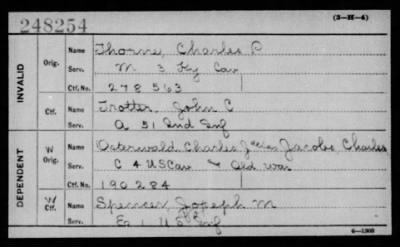 248254
(3-H-4)
INVALID
Orig.
Name Thorne, Charles P
Serv. M 3 Ky Cav
Ctf. No. 278563
Ctf.
Name Trotter John C
Serv. A 51 Ind Inf
DEPENDENT
W
Orig.
Name Osterwald Charles alias Jacobs, Charles
Serv. C 4 US Cav & Old War
Ctf. No. 190284
W
Ctf.
Name Spencer, Joseph M
Serv. 1 U S Inf
6-1308